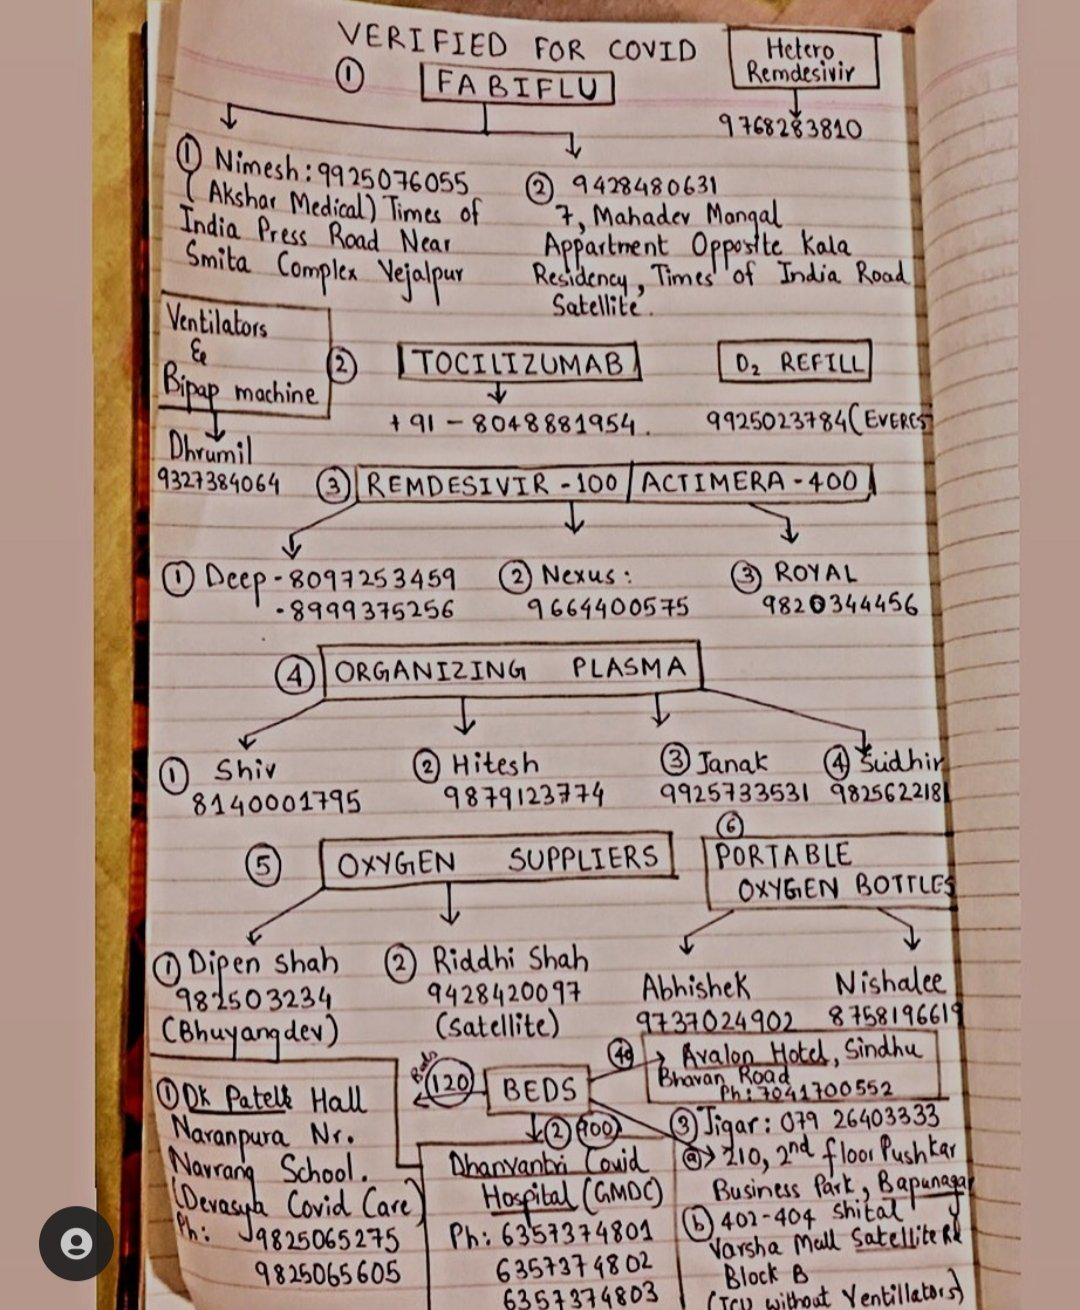 VERIFIED FOR COVID
① FABIFLU
Hetero
Remdesivir
9768283810
① Nimesh: 9925076055
(Akshar Medical) Times of
India Press Road Near
Smita Complex Vejalpur
② 9428480631
7, Mahadev Mangal
Appartment Opposite Kala
Residency, Times of India Road
Satellite.
Ventilators
&
Bipap machine
Dhrumil
9327384064
② TOCILIZUMAB
+91 - 8048881954.
O2 REFILL
9925023784 (EVERES
③ REMDESIVIR - 100 / ACTIMERA - 400
① Deep - 8097253459
- 8999375256
② Nexus:
9664400575
③ ROYAL
9820344456
④ ORGANIZING PLASMA
① Shiv
8140001795
② Hitesh
9879123774
③ Janak
9925733531
④ Sudhir
9825622181
⑤ OXYGEN SUPPLIERS
① Dipen Shah
982503234
(Bhuyangdev)
② Riddhi Shah
9428420097
(Satellite)
⑥
PORTABLE
OXYGEN BOTTLES
Abhishek
9737024902
Nishalee
8758196619
BEDS
Beds
120
① DK Patel Hall
Naranpura Nr.
Navrang School.
(Devasya Covid Care)
Ph: 9825065275
9825065605
② 900
Dhanvantri Covid
Hospital (GMDC)
Ph: 6357374801
6357374802
6357374803
Avalon Hotel, Sindhu
Bhavan Road
Ph: 7041700552
③ Jigar: 079 26403333
ⓐ → 210, 2nd floor Pushkar
Business Park, Bapunagar
ⓑ 402-404 Shital
Varsha Mall Satellite Rd
Block B
(ICU without Ventillators)